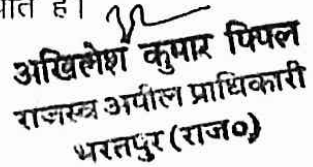 ात है।
अखिलेश कुमार पिपल
राजस्व अपील प्राधिकारी
भरतपुर (राज०)